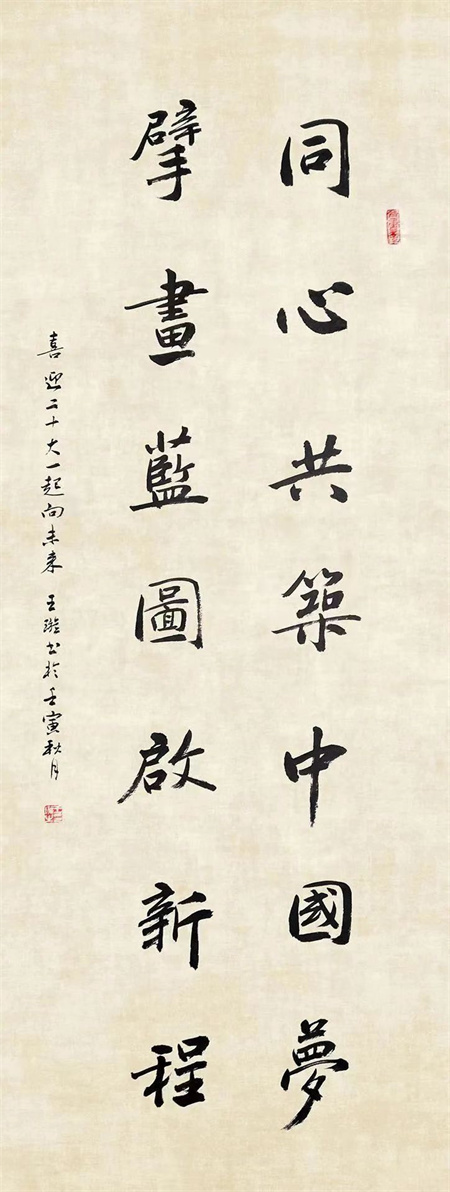 同心共築中國夢
擘畫藍圖啟新程
喜迎二十大一起向未来 王璇书於壬寅秋月